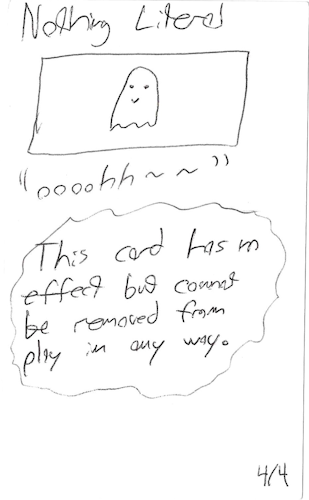 Nothing Literal
"oooohh~~"
This card has no
effect but cannot
be removed from
play in any way.
4/4